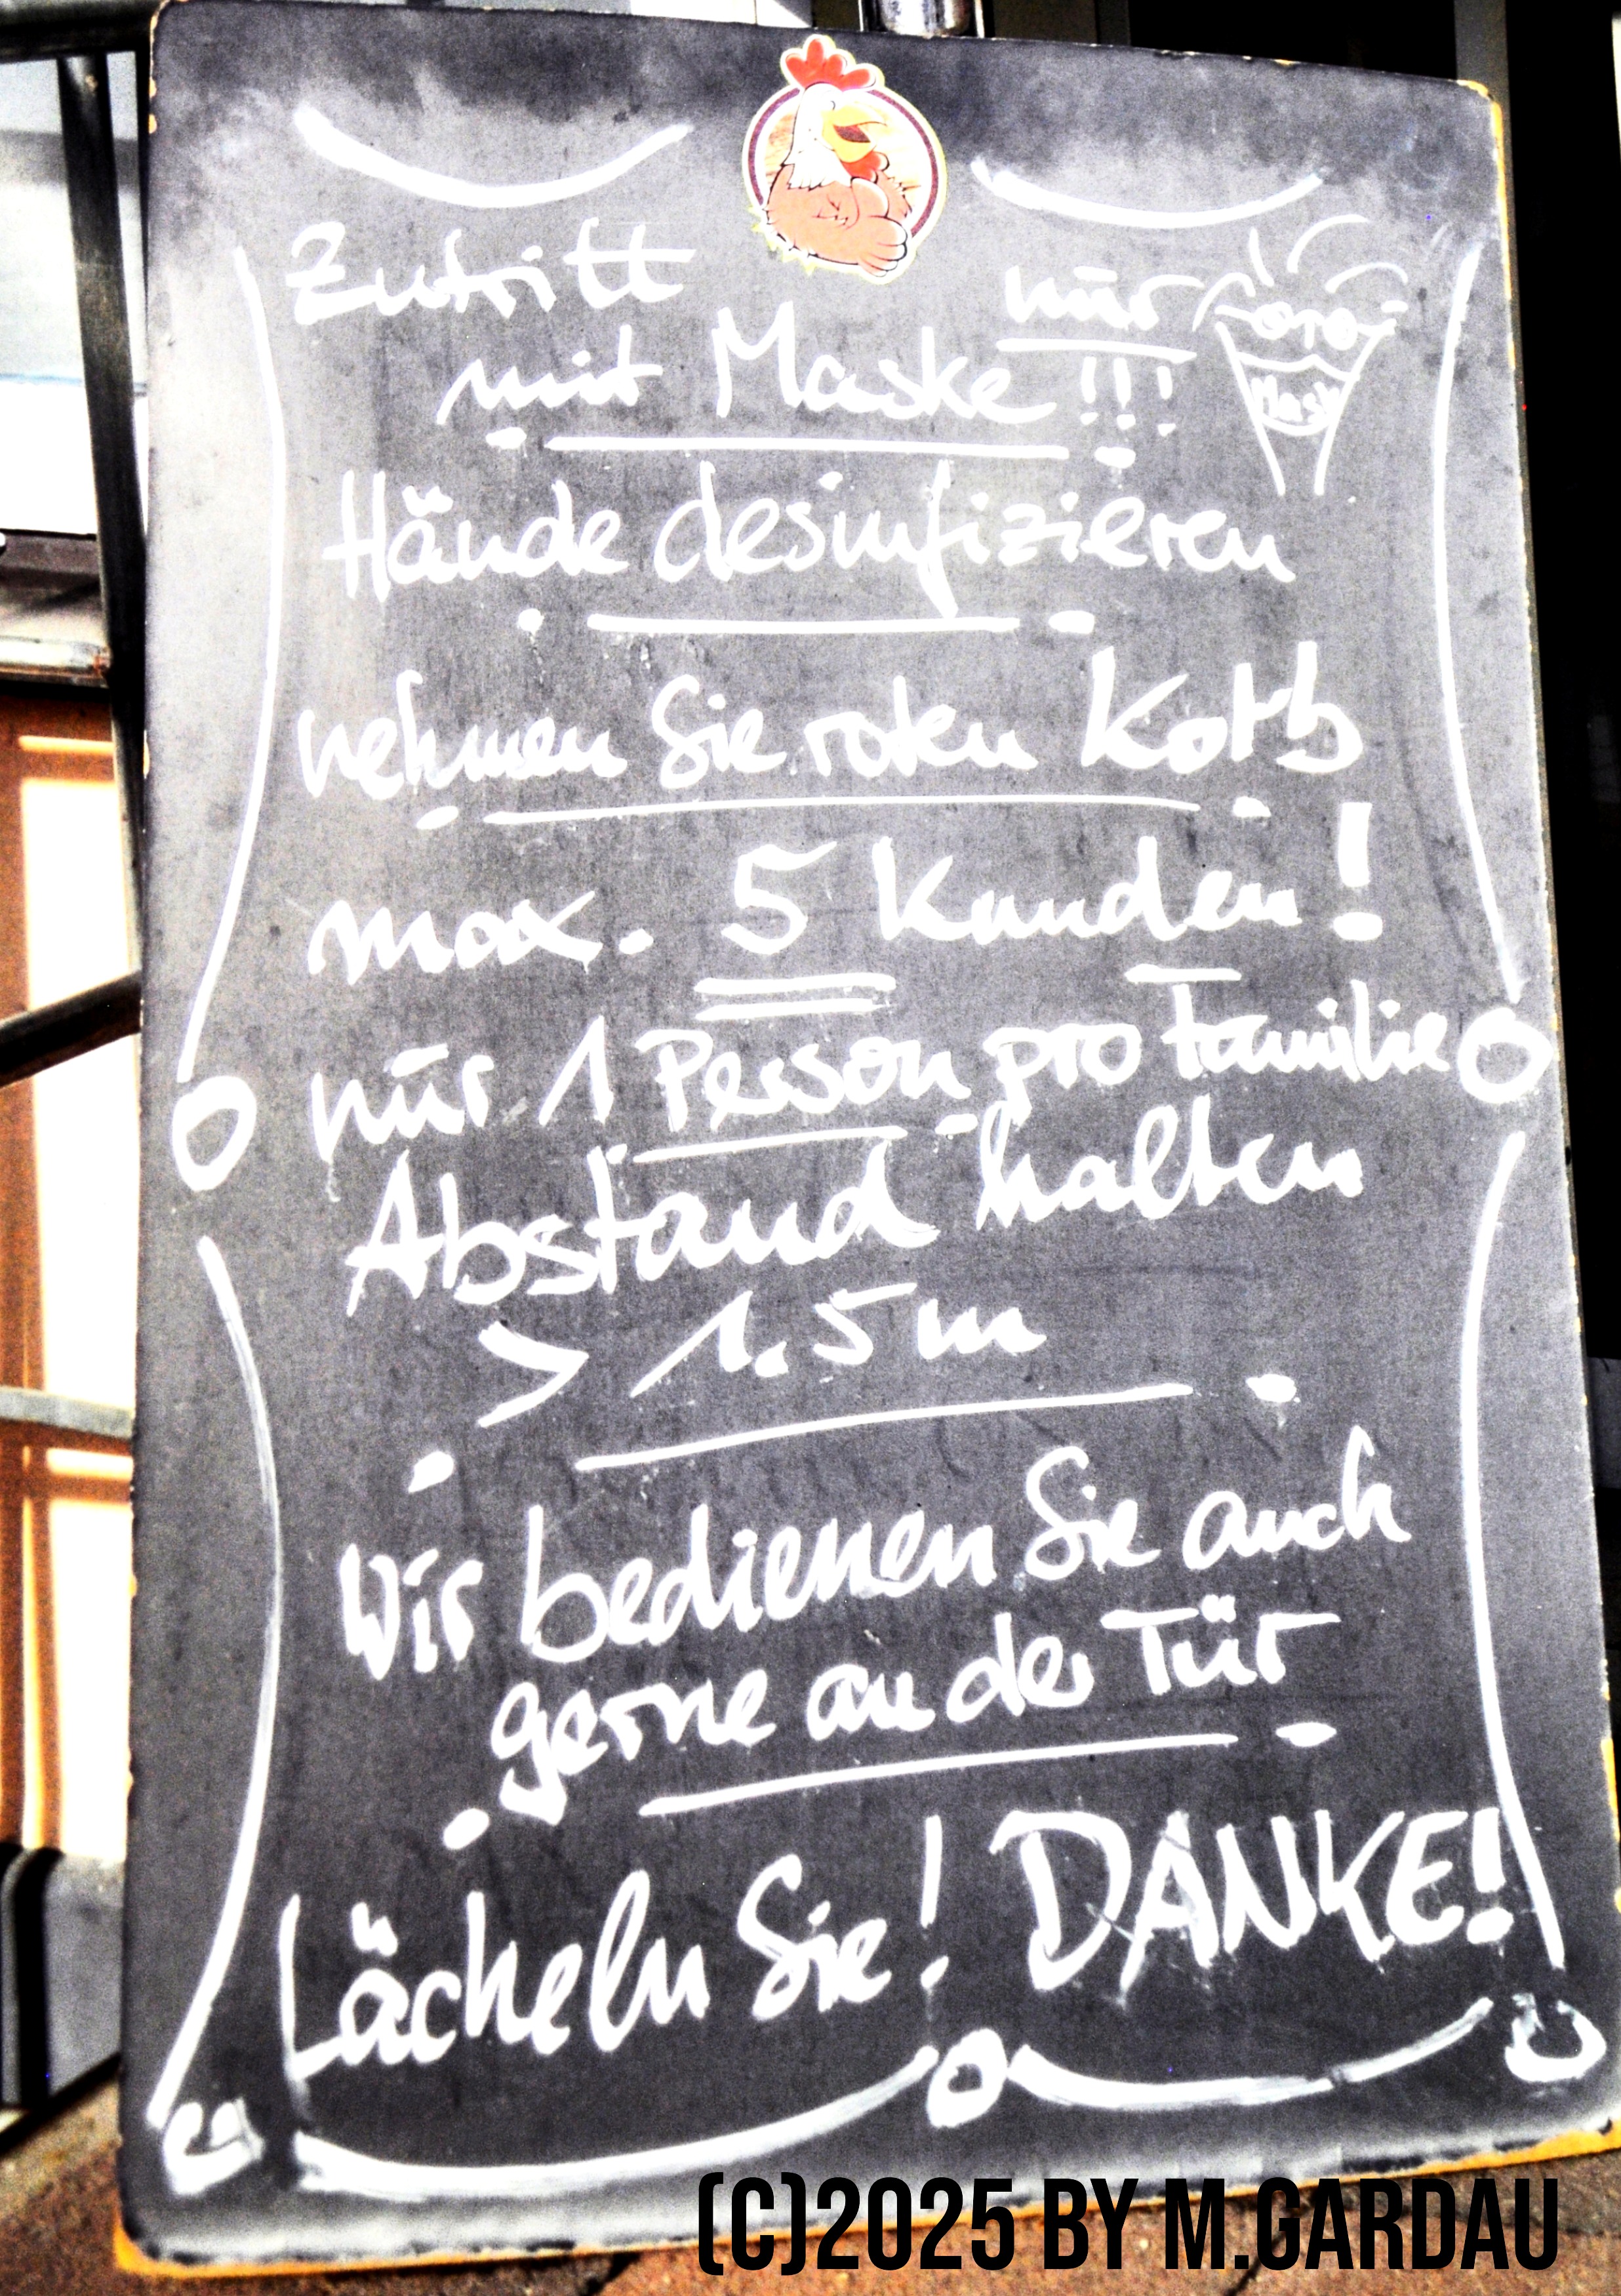 Zutritt nur
mit Maske !!!
Mask
Hände desinfizieren
nehmen Sie roten Korb
max. 5 Kunden!
nur 1 Person pro Familie
Abstand halten
> 1.5 m
Wir bedienen Sie auch
gerne an der Tür
Lächeln Sie! DANKE!
(C)2025 BY M.GARDAU